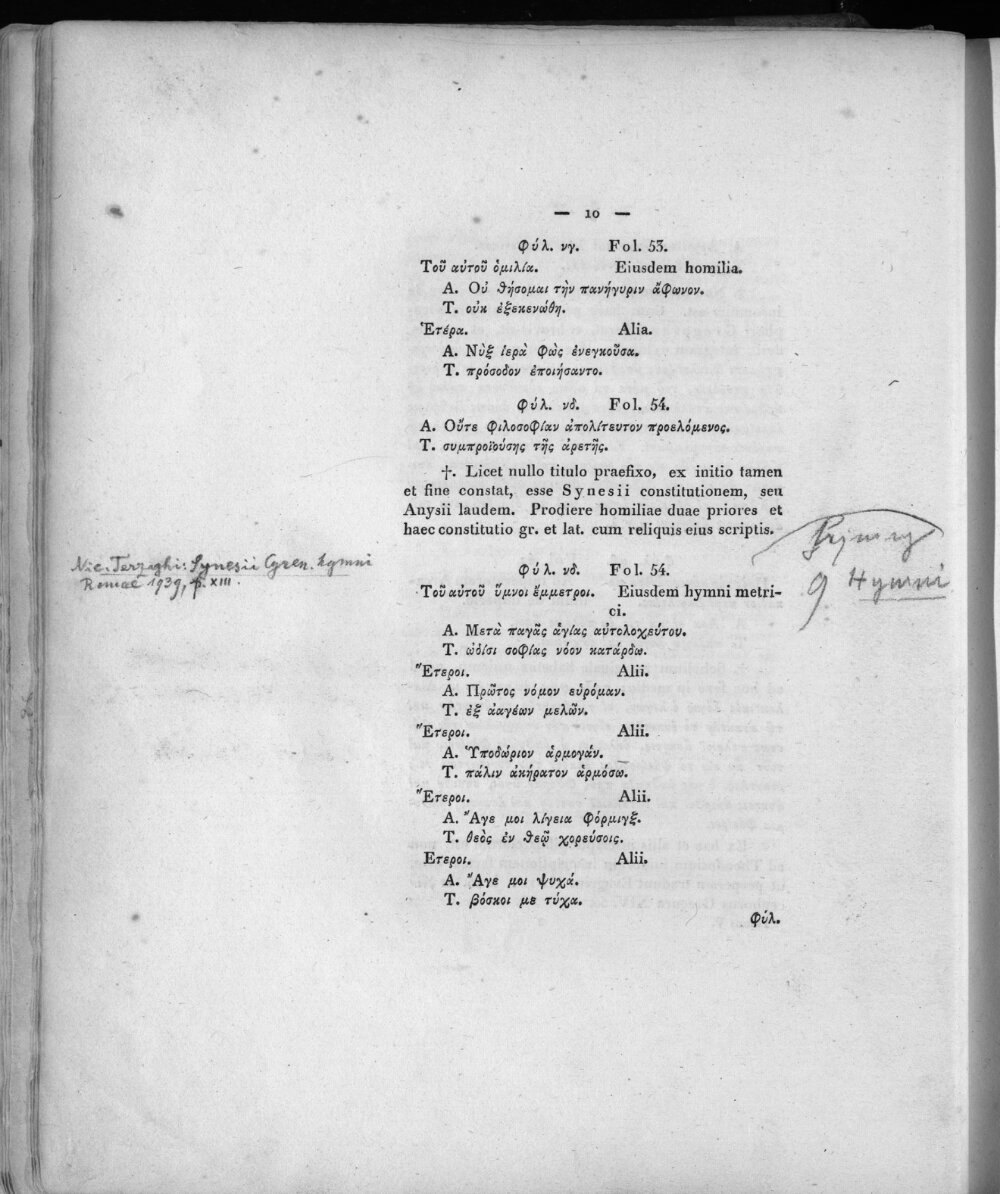 — 10 —
Φύλ. νγ. Fol. 53.
Τοῦ αὐτοῦ ὁμιλία. Eiusdem homilia.
Α. Οὐ θήσομαι τὴν πανήγυριν ἄφωνον.
Τ. οὐκ ἐξεκενώθη.
Ἑτέρα. Alia.
Α. Νὺξ ἱερὰ φῶς ἐνεγκοῦσα.
Τ. πρόσοδον ἐποιήσαντο.
Φύλ. νδ. Fol. 54.
Α. Οὔτε φιλοσοφίαν ἀπολίτευτον προελόμενος.
Τ. συμπροϊούσης τῆς ἀρετῆς.
†. Licet nullo titulo praefixo, ex initio tamen
et fine constat, esse Synesii constitutionem, seu
Anysii laudem. Prodiere homiliae duae priores et
haec constitutio gr. et lat. cum reliquis eius scriptis.
Nic. Terzaghi: Synesii Cyren. hymni
Romae 1939, p. XIII.
9 Hymni
Φύλ. νδ. Fol. 54.
Τοῦ αὐτοῦ ὕμνοι ἔμμετροι. Eiusdem hymni metri-
ci.
Α. Μετὰ παγᾶς ἁγίας αὐτολοχεύτου.
Τ. ὠδῖσι σοφίας νόον κατάρδω.
Ἕτεροι. Alii.
Α. Πρῶτος νόμον εὑρόμαν.
Τ. ἐξ ἀαγέων μελῶν.
Ἕτεροι. Alii.
Α. Ὑποδώριον ἁρμογάν.
Τ. πάλιν ἀκήρατον ἁρμόσω.
Ἕτεροι. Alii.
Α. Ἄγε μοι λίγεια φόρμιγξ.
Τ. θεὸς ἐν θεῷ χορεύσοις.
Ετεροι. Alii.
Α. Ἄγε μοι ψυχά.
Τ. βόσκοι με τύχα.
Φύλ.